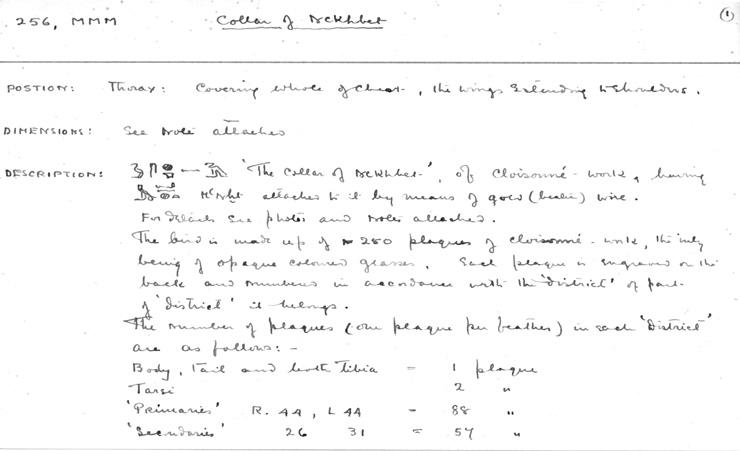 256, MMM Collar of Nekhbet 1
POSTION: Thorax: Covering whole of chest, the wings extending to shoulders.
DIMENSIONS: See Note attached
DESCRIPTION: 'The Collar of Nekhbet', of cloisonné-work, having
attached to it by means of gold (beaten) wire.
For details see photos and notes attached.
The bird is made up of 250 plaques of cloisonné-work, the inlay
being of opaque coloured glasses. Each plaque is engraved on the
back and numbered in accordance with the 'district' of part
of 'district' it belongs.
The number of plaques (one plaque per feather) in each 'District'
are as follows:-
Body, tail and both tibia = 1 plaque
Tarsi 2 "
'Primaries' R. 44, L 44 = 88 "
'Secondaries' 26 31 = 57 "